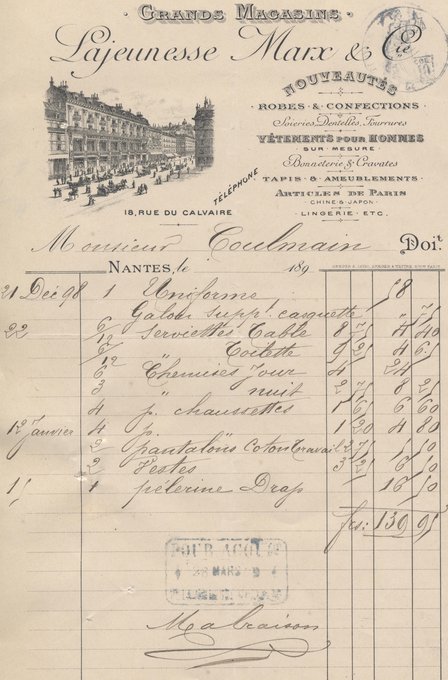 GRANDS MAGASINS
Lajeunesse Marx & Cie
NOUVEAUTÉS
ROBES & CONFECTIONS
Soieries, Dentelles, Fourrures
VÊTEMENTS POUR HOMMES
SUR MESURE
Bonneterie & Cravates
TAPIS & AMEUBLEMENTS
ARTICLES DE PARIS
CHINE & JAPON
LINGERIE - ETC.
TÉLÉPHONE
18, RUE DU CALVAIRE
Monsieur Coulmain Doit
NANTES, le 189
21 Déc 98 1 Uniforme 58
Galon Suppt casquette " 75
22 6/12 Serviettes Table 8 75 4 40
6/12 " Toilette 9 25 4 65
6 Chemises Jour 4 24
3 " nuit 2 75 8 25
4 p. chaussettes 1 65 6 60
12 Janvier 4 p. " 1 20 4 80
2 pantalons Coton travail
2 Vestes 3 25 6 50
1 pélerine Drap 16 50
frs: 139 95
POUR ACQUIT
MARS